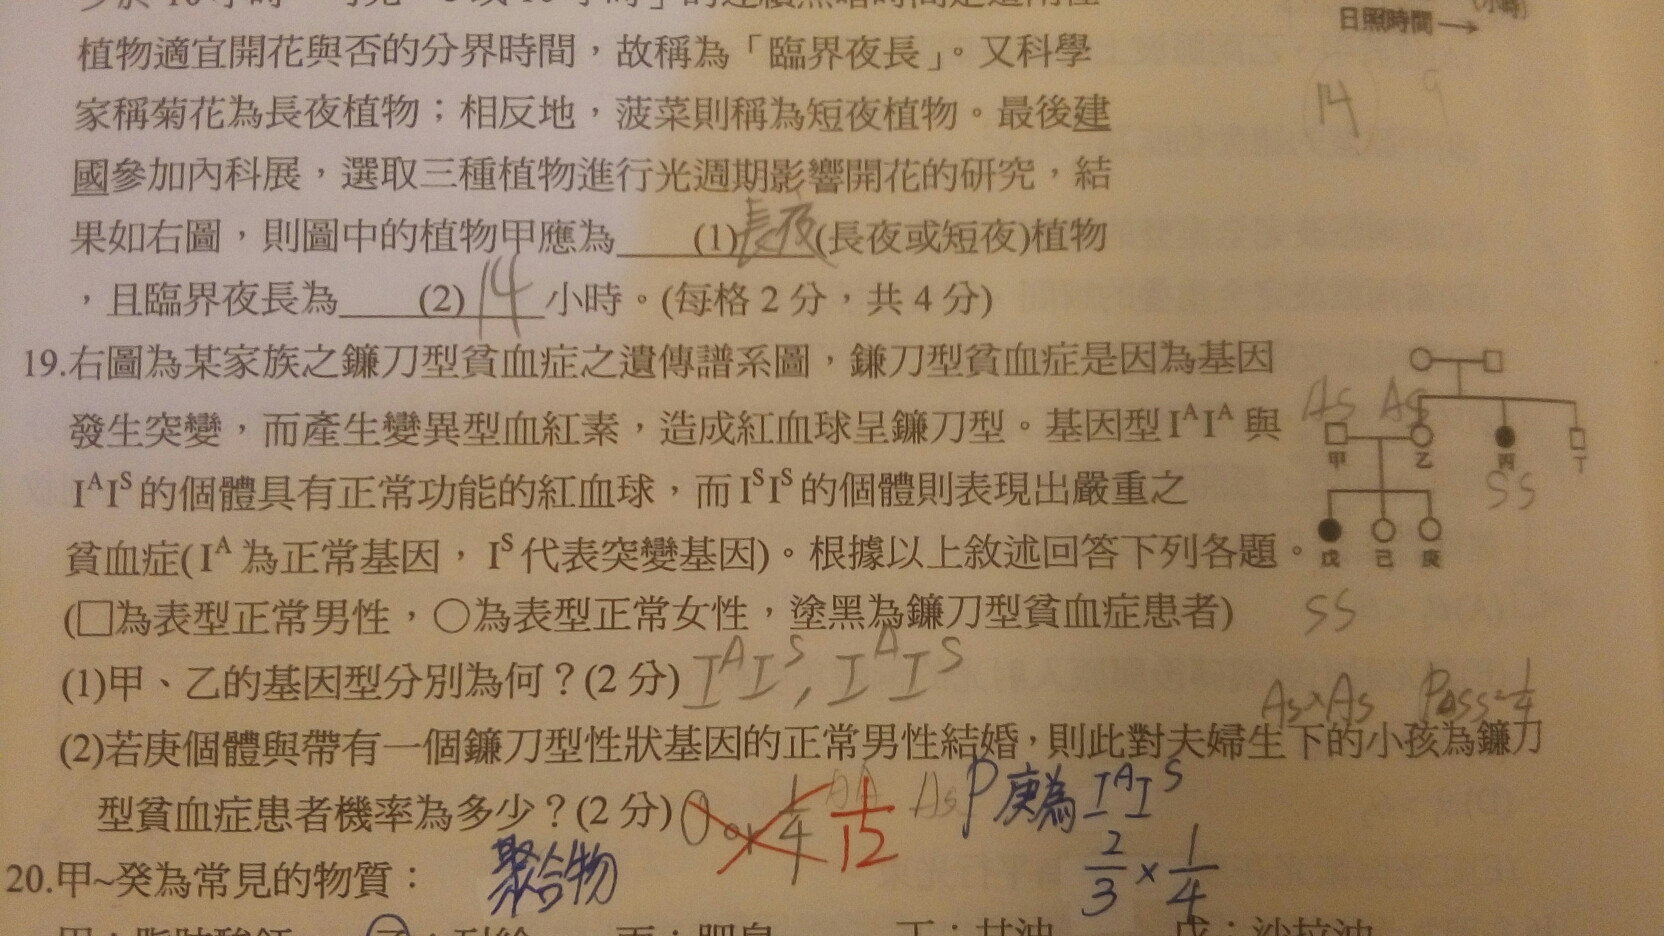 日照時間→ (小時)
植物適宜開花與否的分界時間，故稱為「臨界夜長」。又科學
家稱菊花為長夜植物；相反地，菠菜則稱為短夜植物。最後建
14 9
國參加內科展，選取三種植物進行光週期影響開花的研究，結
果如右圖，則圖中的植物甲應為 (1)長夜(長夜或短夜)植物
，且臨界夜長為 (2)14小時。(每格2分，共4分)
19.右圖為某家族之鐮刀型貧血症之遺傳譜系圖，鐮刀型貧血症是因為基因
發生突變，而產生變異型血紅素，造成紅血球呈鐮刀型。基因型IᴬIᴬ與
IᴬIˢ的個體具有正常功能的紅血球，而IˢIˢ的個體則表現出嚴重之
貧血症(Iᴬ為正常基因，Iˢ代表突變基因)。根據以上敘述回答下列各題。
(□為表型正常男性，○為表型正常女性，塗黑為鐮刀型貧血症患者)
As As
甲 乙 丙 丁
SS
戊 己 庚
SS
(1)甲、乙的基因型分別為何？(2分) IᴬIˢ, IᴬIˢ
As×As Pass=1/4
(2)若庚個體與帶有一個鐮刀型性狀基因的正常男性結婚，則此對夫婦生下的小孩為鐮刀
型貧血症患者機率為多少？(2分) 0 or 1/4 1/12 AA As P庚為IᴬIˢ
2/3×1/4
20.甲~癸為常見的物質： 聚合物